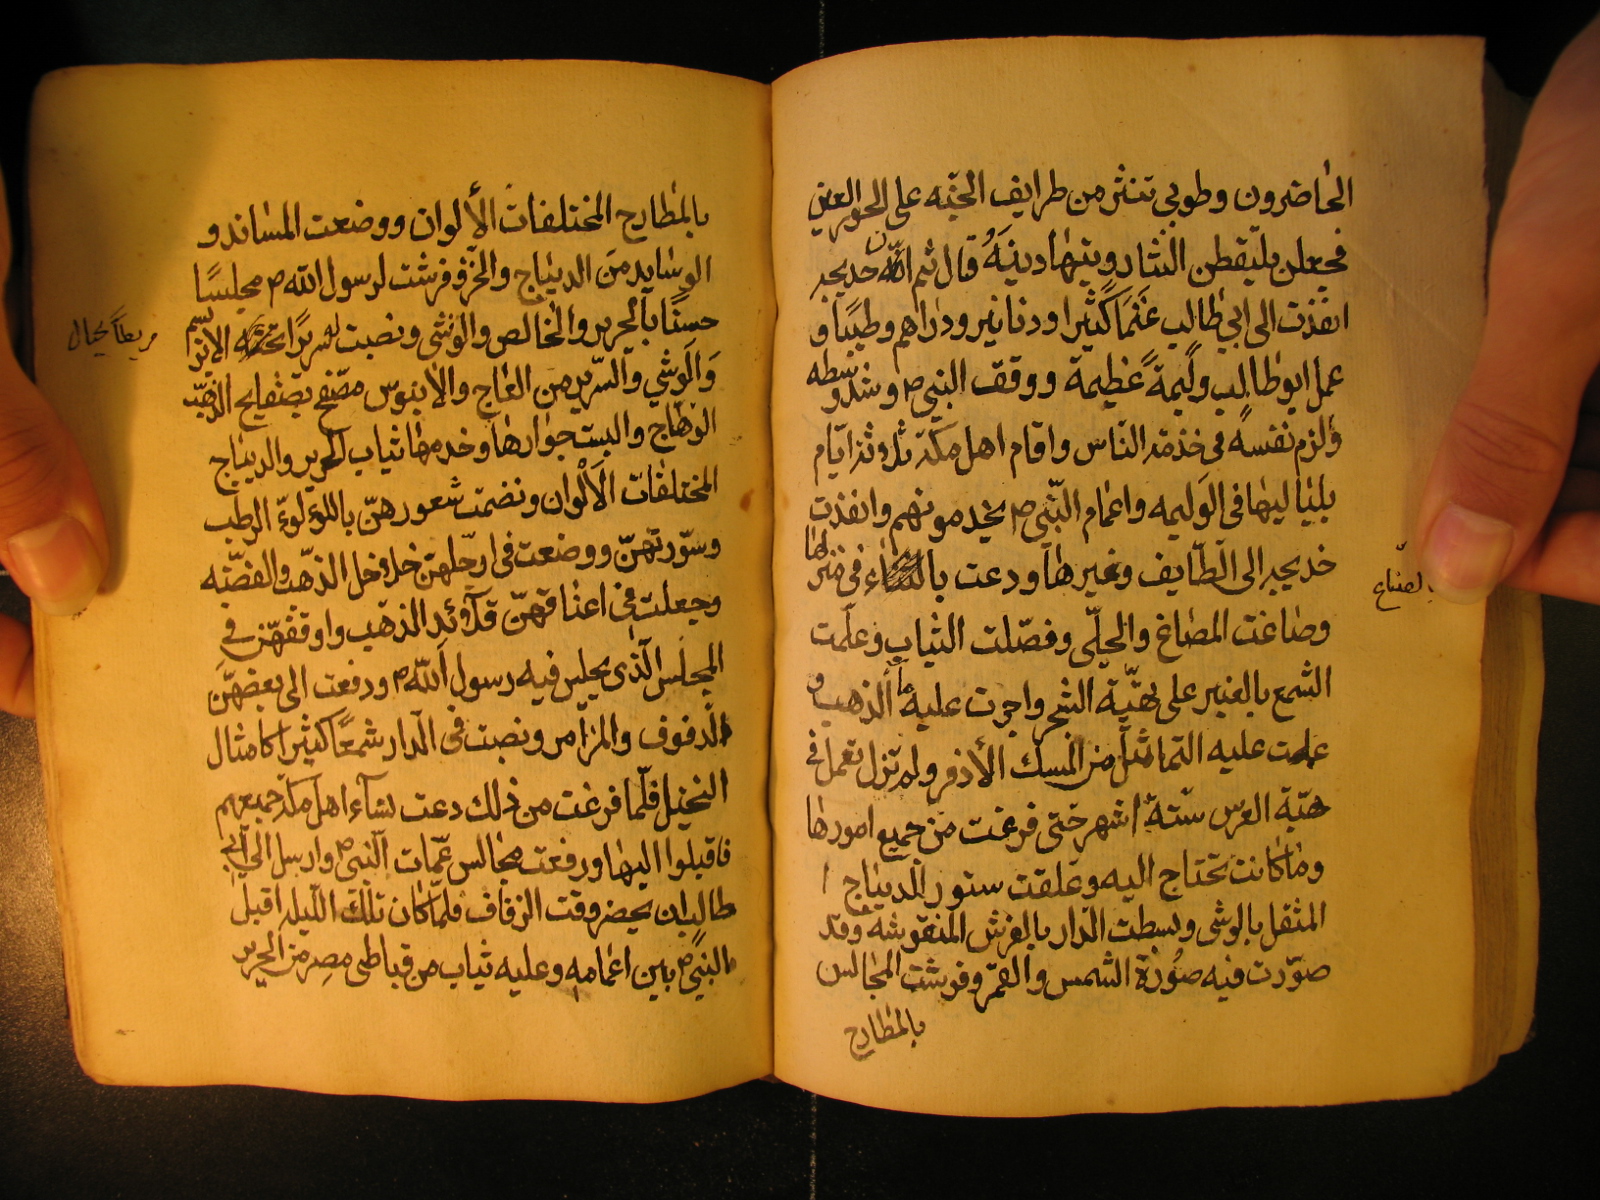 الحاضرون وطوبى تنثر من طرايف الجنه على الحور العين
فجعلن يلتقطن النثار ويتهادينه قال ثم ان خديجه
انفذت الى ابي طالب غنما كثيرا ودنانير ودراهم وطيبا و
عمل ابو طالب وليمة عظيمة ووقف النبي ص وشد وسطه
والزم نفسه في خدمة الناس واقام اهل مكة ثلاثة ايام
بلياليها في الوليمه واعمام النبي ص يخدمونهم وانفذت
خديجه الى الطايف وغيرها ودعت في منزلها
بالصناع
وصاغت المصاغ والحلى وفصلت الثياب وعلمت
الشمع بالعنبر على هيّة الشجر واجرت عليه ماء الذهب و
علمت عليه التماثيل من المسك الأذفر ولم تزل تعمل في
هيّة العرس ستة اشهر حتى فرغت من جميع امورها
وما كانت تحتاج اليه وعلقت ستور الديباج
المثقل بالوشى وبسطت الدار بالفرش المنقوشه وقد
صوّرت فيه صورة الشمس والقمر وفرشت المجالس
بالمطارح
بالمطارح المختلفات الألوان ووضعت المساند و
الوسايد من الديباج والخز وفرشت لرسول الله ص مجلسًا
حسنًا بالحرير والخالص والوشى ونصبت له سريرًا الابريسم
والوشي والسرير من العاج والابنوس مصفح بصفايح الذهب
الوهّاج والبست جوارها وخدمها ثياب الحرير والديباج
المختلفات الألوان ونضمت شعورهنّ باللؤلوء الرطب
وسورتهنّ ووضعت في ارجلهنّ خلاخل الذهب والفضّه
وجعلت في اعناقهنّ قلآئد الذهب واوقفهنّ في
المجلس الّذى يجلس فيه رسول الله ص ودفعت الى بعضهنّ
الدفوف والمزامر ونصبت في الدار شمعًا كثيرا كامثال
النخيل فلّما فرغت من ذلك دعت نسآء اهل مكة جميعهم
فاقبلوا اليها ورفعت مجالس عمّات النبي ص وارسل الى ابي
طالب ان يحضر وقت الزفاف فلمّا كان تلك الليله اقبل
النبي ص بين اعمامه وعليه ثياب من قباطى مصر من الحرير